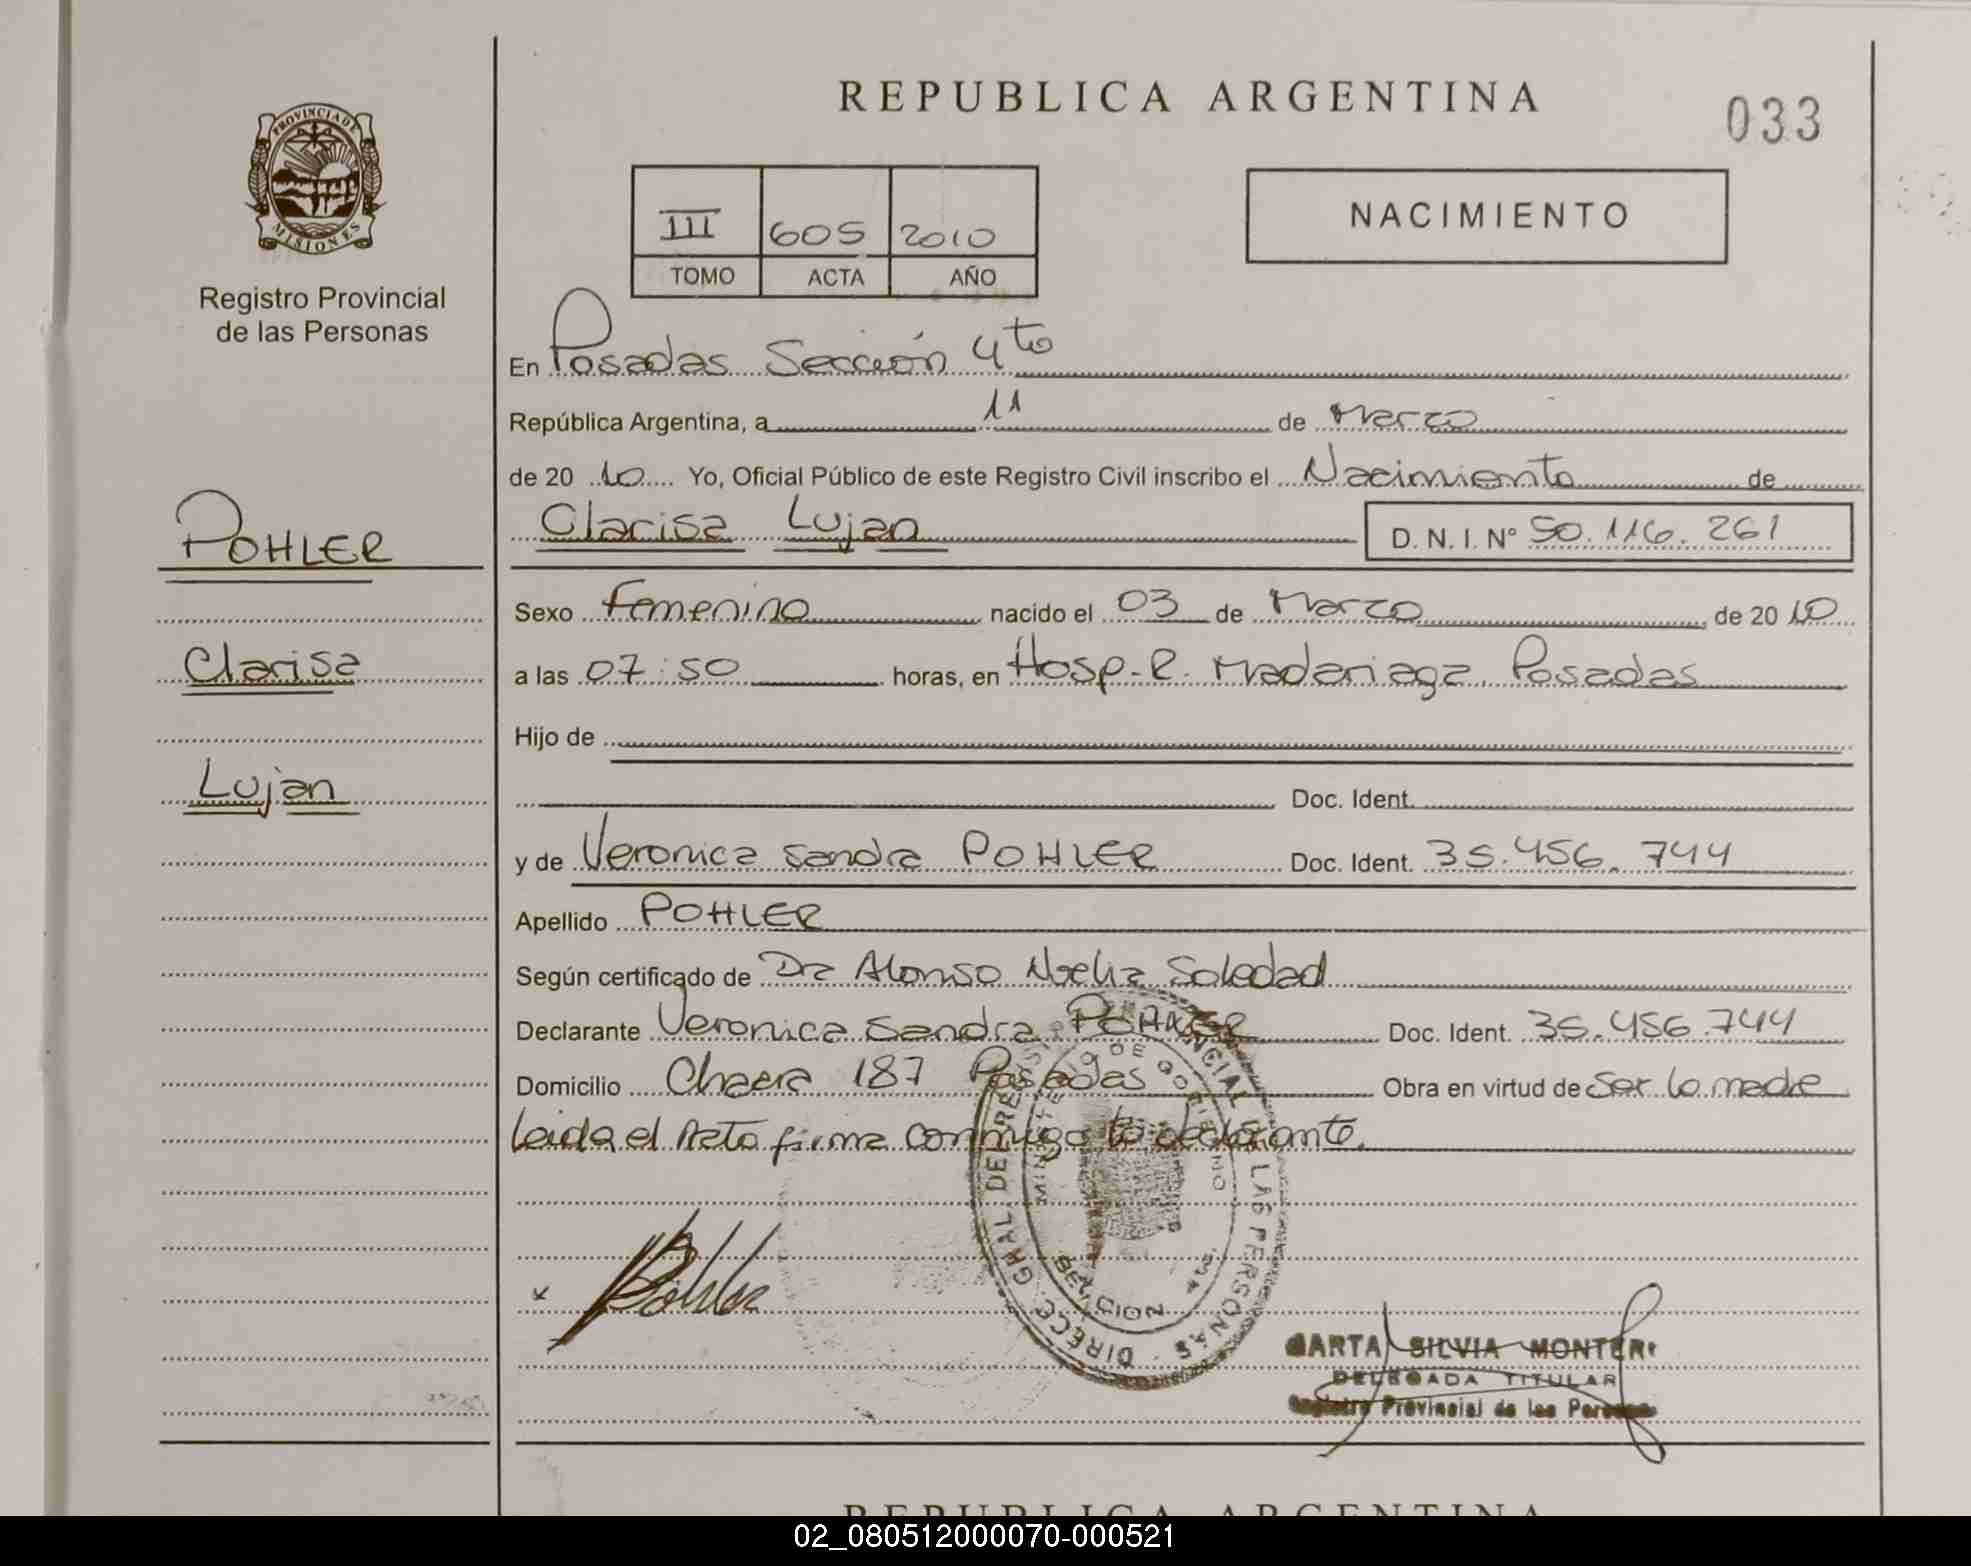 REPUBLICA ARGENTINA
033
PROVINCIA DE MISIONES
Registro Provincial
de las Personas
III 605 2010
TOMO ACTA AÑO
NACIMIENTO
En Posadas Sección 4to
República Argentina, a 11 de Marzo
de 20 10 Yo, Oficial Público de este Registro Civil inscribo el Nacimiento de
Clarisa Lujan D.N.I. N° 50.116.261
POHLER
Clarisa
Lujan
Sexo Femenino nacido el 03 de Marzo de 20 10
a las 07:50 horas, en Hosp. R. Madariaga. Posadas
Hijo de
Doc. Ident.
y de Veronica Sandra POHLER Doc. Ident. 35.456.744
Apellido POHLER
Según certificado de Dra Alonso Noelia Soledad
Declarante Veronica Sandra POHLER Doc. Ident. 35.456.744
Domicilio Chacra 187 Posadas Obra en virtud de Ser la madre
Leida el Acta firma conmigo la declarante.
DIRECC. GRAL. DEL REGISTRO PROVINCIAL DE LAS PERSONAS
MINISTERIO DE GOBIERNO
Pohler
MARTA SILVIA MONTER
DELEGADA TITULAR
Registro Provincial de las Personas
REPUBLICA ARGENTINA
02_080512000070-000521